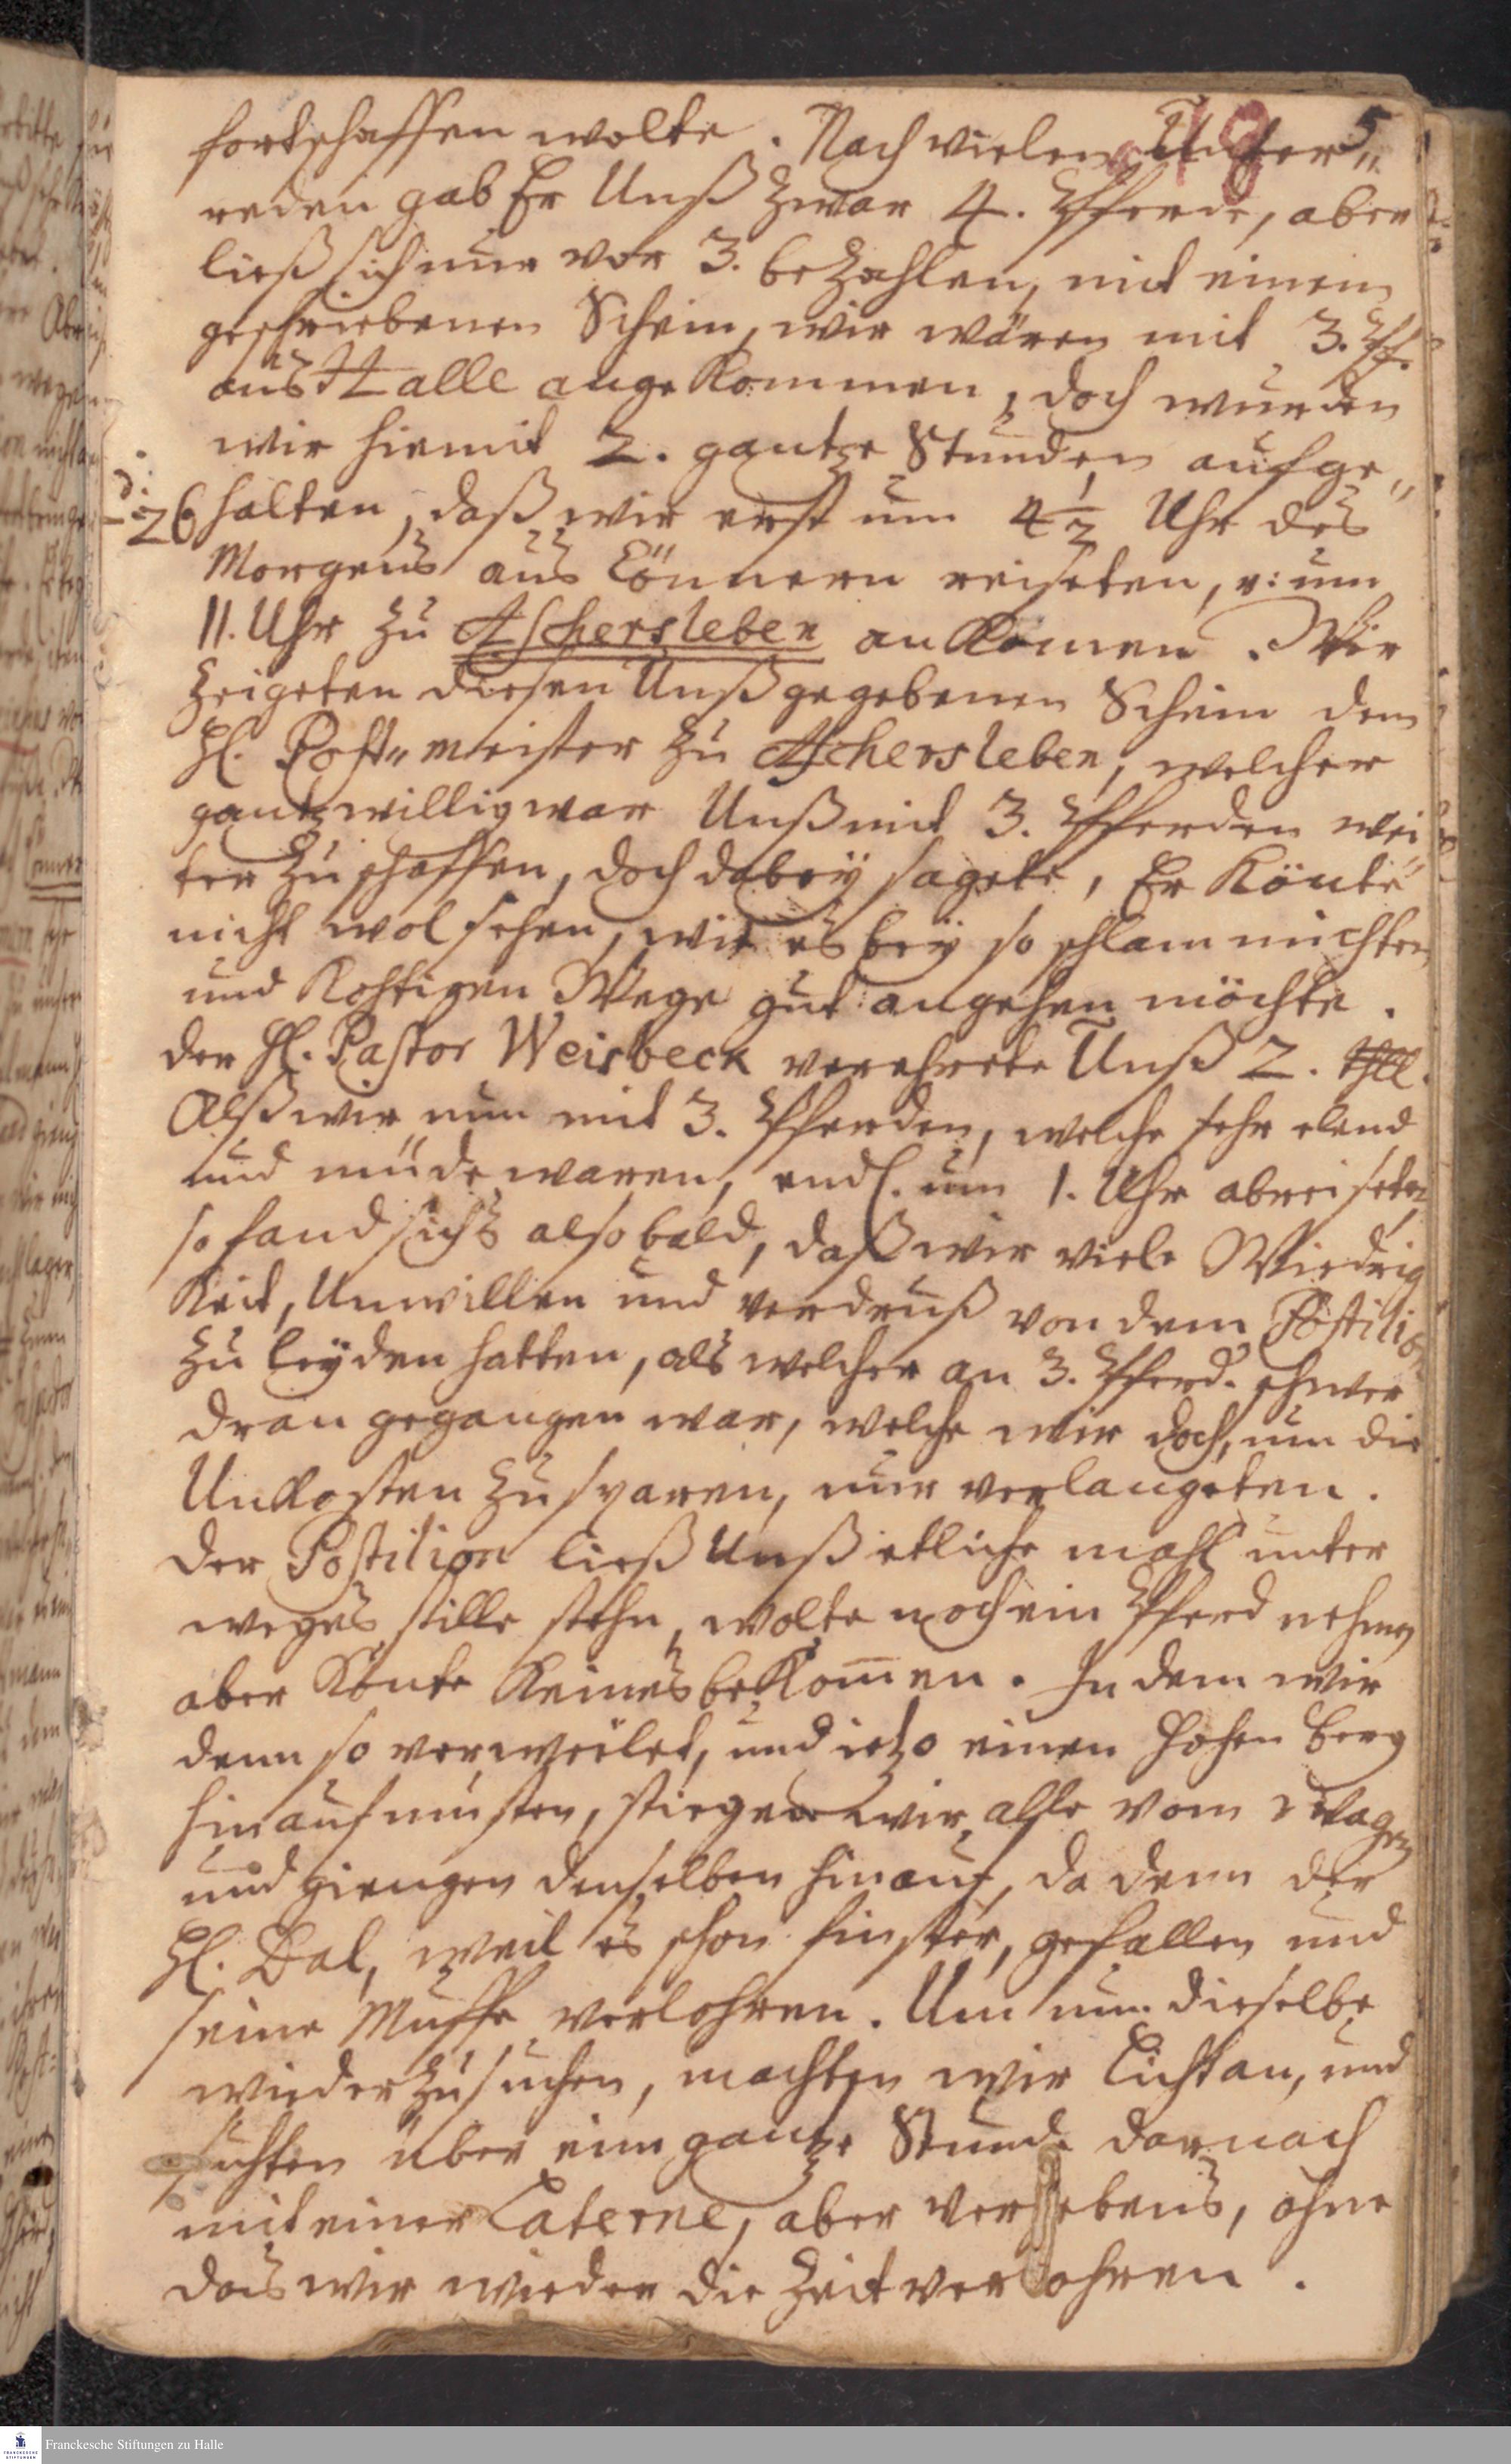 5
18
fortschaffen wolte. Nach vielen Unter„
reden gab Er Unß zwar 4. Pferde, aber
ließ sich nur vor 3. bezahlen, mit einem
geschriebenen Schein, wir wären mit 3. Pf.
aus Halle angekommen, doch wurden
wir hiemit 2. gantze Stunden aufge„
d. 26 halten, daß wir erst um 4 1/2 Uhr des
Morgens aus Cönnern reiseten, u: um
11. Uhr zu Aschersleben ankamen. Wir
zeigeten diesen Unß gegebenen Schein dem
H. Post„meister zu Aschersleben, welcher
gantz willig war Unß mit 3. Pferden wei
ter zu schaffen, doch dabey sagete, Er könte
nicht wol sehen, wie es bey so schlammichten
und kohtigen Wege gut angehen möchte.
der H. Pastor Weisbeck verehrete Unß 2. thll.
Alß wir nun mit 3. Pferden, welche sehr elend
und müde waren, endl. um 1. Uhr abreiseten
so fand sichs alsobald, daß wir viele Wiedrig
keit, Unwillen und verdruß von dem Postilion
zu leyden hatten, als welcher an 3. Pferd. schwer
dran gegangen war, welche wir doch, um die
Unkosten zu sparen, nur verlangeten.
der Postilion ließ Unß etliche mahl unter
weges stille stehn, wolte noch ein Pferd nehmen
aber konte keines bekom̄en. In dem wir
denn so verweilet, und ietzo einen hohen berg
hinauf musten, stiegen wir alle vom Wagen
und giengen denselben hinauf, da denn der
H. Dal, weil es schon finster, gefallen und
seine Muffe verlohren. Um nun dieselbe
wieder zu suchen, machten wir Licht an, und
suchten über eine gantze Stunde darnach
mit einer Laterne, aber vergebens, ohne
das wir wieder die Zeit verlohren.
Franckesche Stiftungen zu Halle